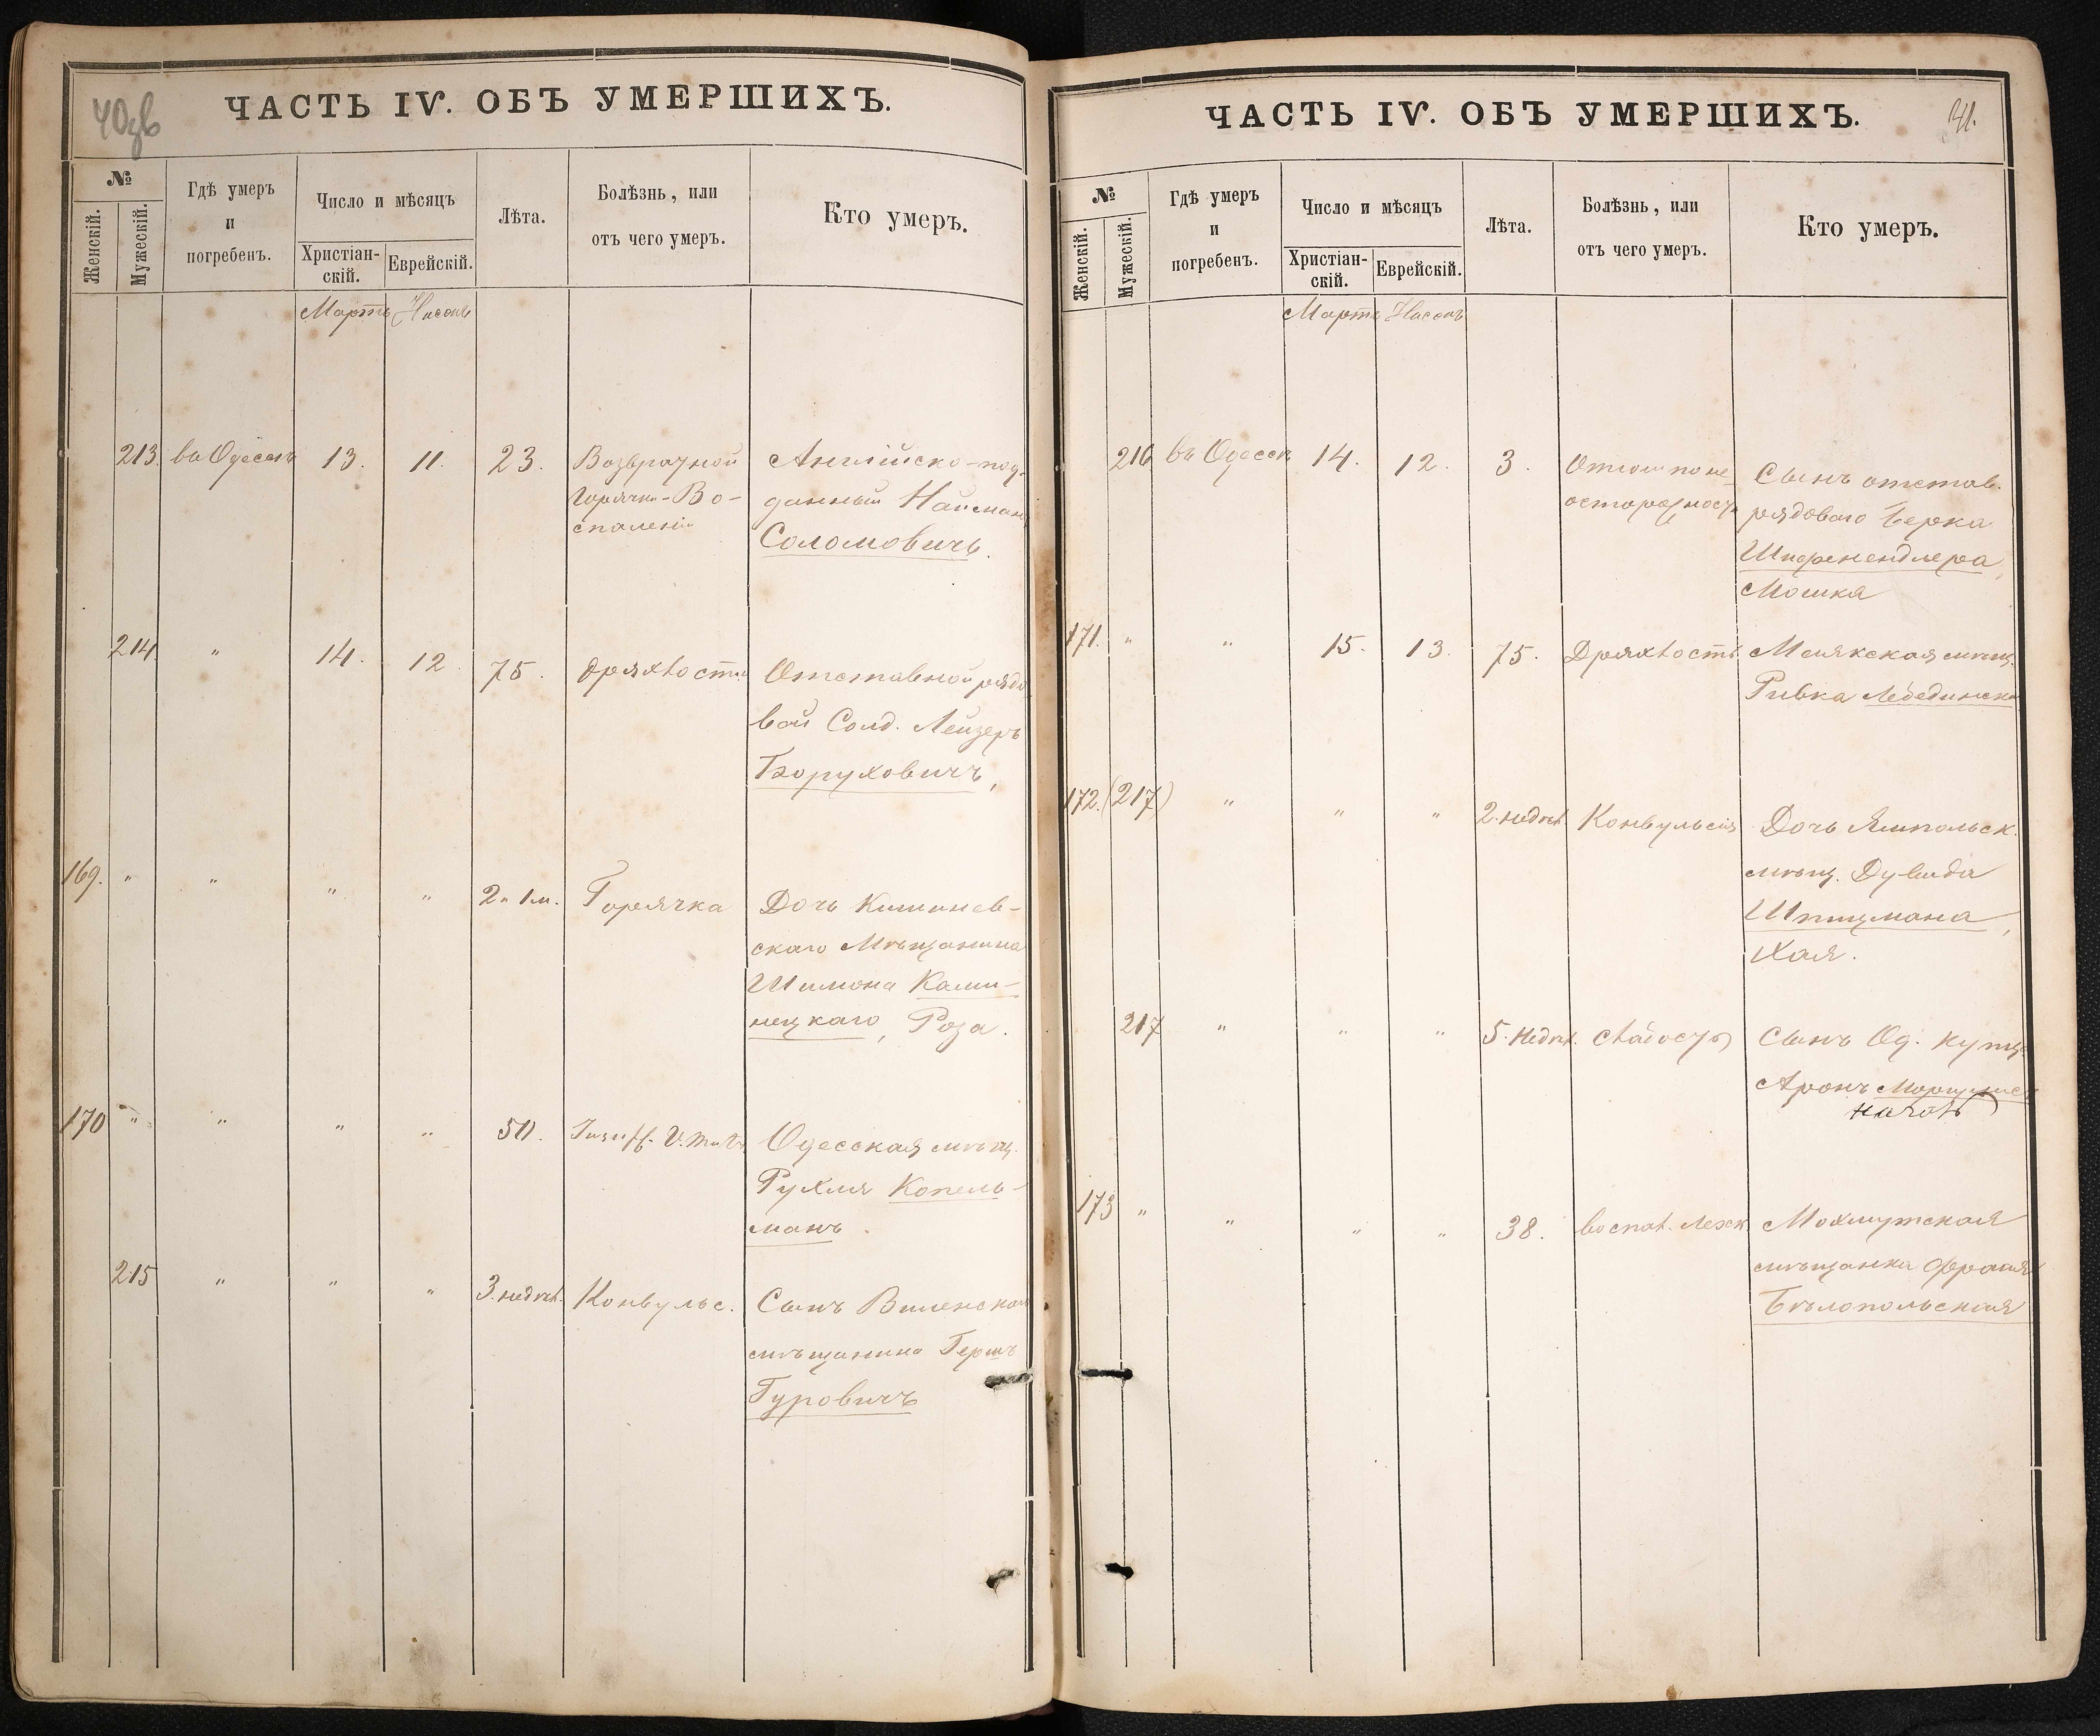 40зв
ЧАСТЬ IV. ОБЪ УМЕРШИХЪ.
№
Женскій.
Мужескій.
Гдѣ умеръ
и
погребенъ.
Число и мѣсяцъ
Христіан-
скій.
Еврейскій.
Лѣта.
Болѣзнь, или
отъ чего умеръ.
Кто умеръ.
Мартъ Нисонъ
213. въ Одессѣ 13. 11. 23.
Возвратной
Горячки-Во-
спаленіи
Англійско-под-
данный Найман
Соломовичъ.
214. " 14. 12. 75. Дряхлости
Отставной рядо
вой Солд. Лейзеръ
Боруховичъ,
169. " " " " 2 и 1 м. Горячка
Дочь Кишинев-
скаго Мѣщанина
Шимона Ками-
нецкаго, Роза.
170 " " " " 50.
Одесская мѣщ.
Рухля Копель-
манъ.
215 " " " 3. недѣл. Конвульс.
Сынъ Виленскаго
мѣщанина Гершъ
Гуровичъ
ЧАСТЬ IV. ОБЪ УМЕРШИХЪ.
41.
№
Женскій.
Мужескій.
Гдѣ умеръ
и
погребенъ.
Число и мѣсяцъ
Христіан-
скій.
Еврейскій.
Лѣта.
Болѣзнь, или
отъ чего умеръ.
Кто умеръ.
Мартъ Нисонъ
216 въ Одессѣ 14. 12. 3.
по не-
осторожности
Сынъ отстав.
рядоваго Берка
Шифмендлера,
Мошка
171. " " 15. 13. 75. Дряхлость
мѣщ.
Ривка Лебединска
172. (217) " " " 2. недѣл. Конвульсія
Дочь Ямпольск.
мѣщ. Дувида
Шпицмана,
Хая.
217 " " " 5. Недѣл. Слабость
Сынъ Од. купца
Аронъ
173 " " " " 38. воспал. легк.
мѣщанка
Бѣлопольская